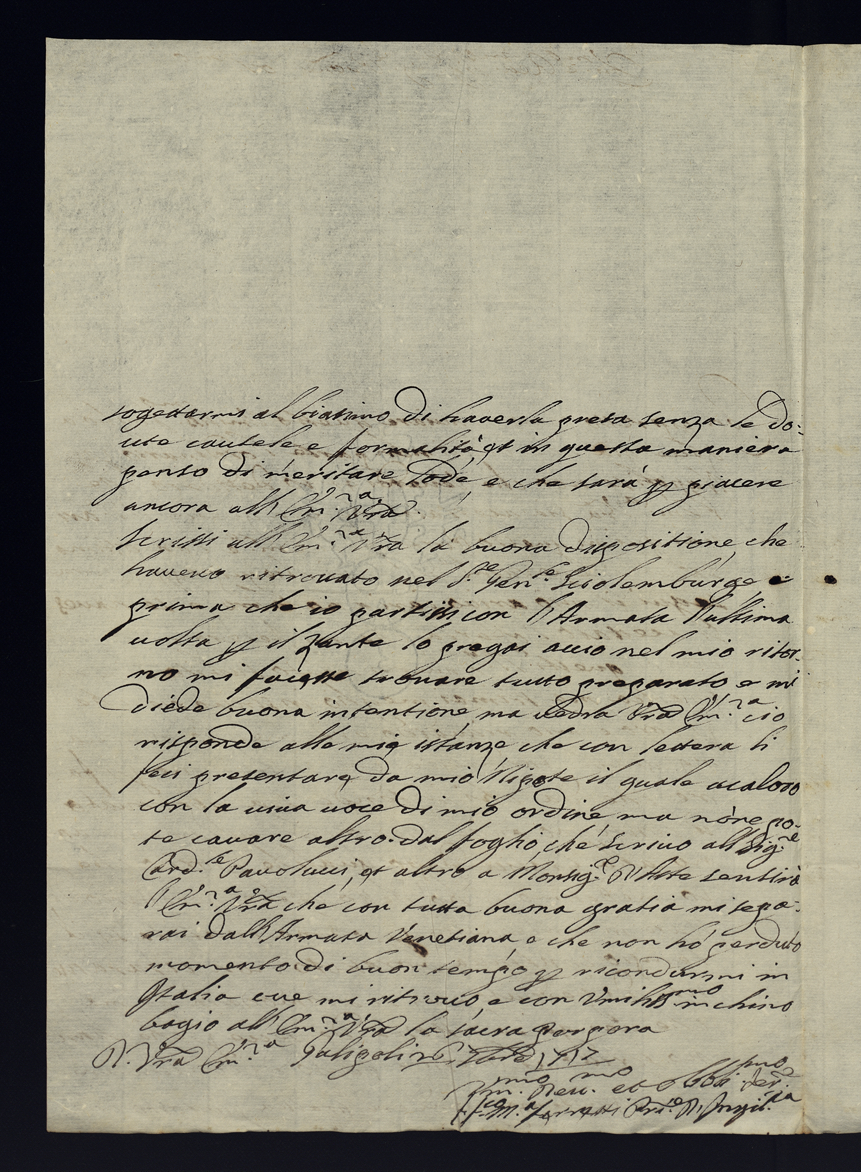 sogettarmi al biasimo di haverla presa senza le do-
vute cautele e formalità, et in questa maniera
penso di meritare lode, e che sarà p piacere
ancora all' Em.za Vra.
Scrissi all' Em.za Vra la buona dispositione, che
havevo ritrovato nel S.re Gen.le Sciolemburge e
prima che io partissi con l'Armata l'ultima
volta p il Zante lo pregai acciò nel mio ritor-
no mi facesse trovare tutto preparato e mi
diede buona intentione, ma vedrà Vra Em.za ciò
risponde alle mie istanze che con lettera li
feci presentare da mio Nipote il quale acalorò
con la viva voce di mio ordine ma non po-
té cavare altro. dal foglio, che scrivo all Sig.re
Card.le Pavolucci, et altro a Monsig.re sentirà
l'Em.za Vra che con tutta buona gratia mi sepa-
rai dall'Armata Venetiana, e che non hò perduto
momento di buon tempo p ricondurmi in
Italia ove mi ritrovo, e con Umiliss.mo inchino
bagio all' Em.za Vra la sacra porpora
D. Vra Em.za 1717
Um.mo Dev.mo et Obb.mo Ser.